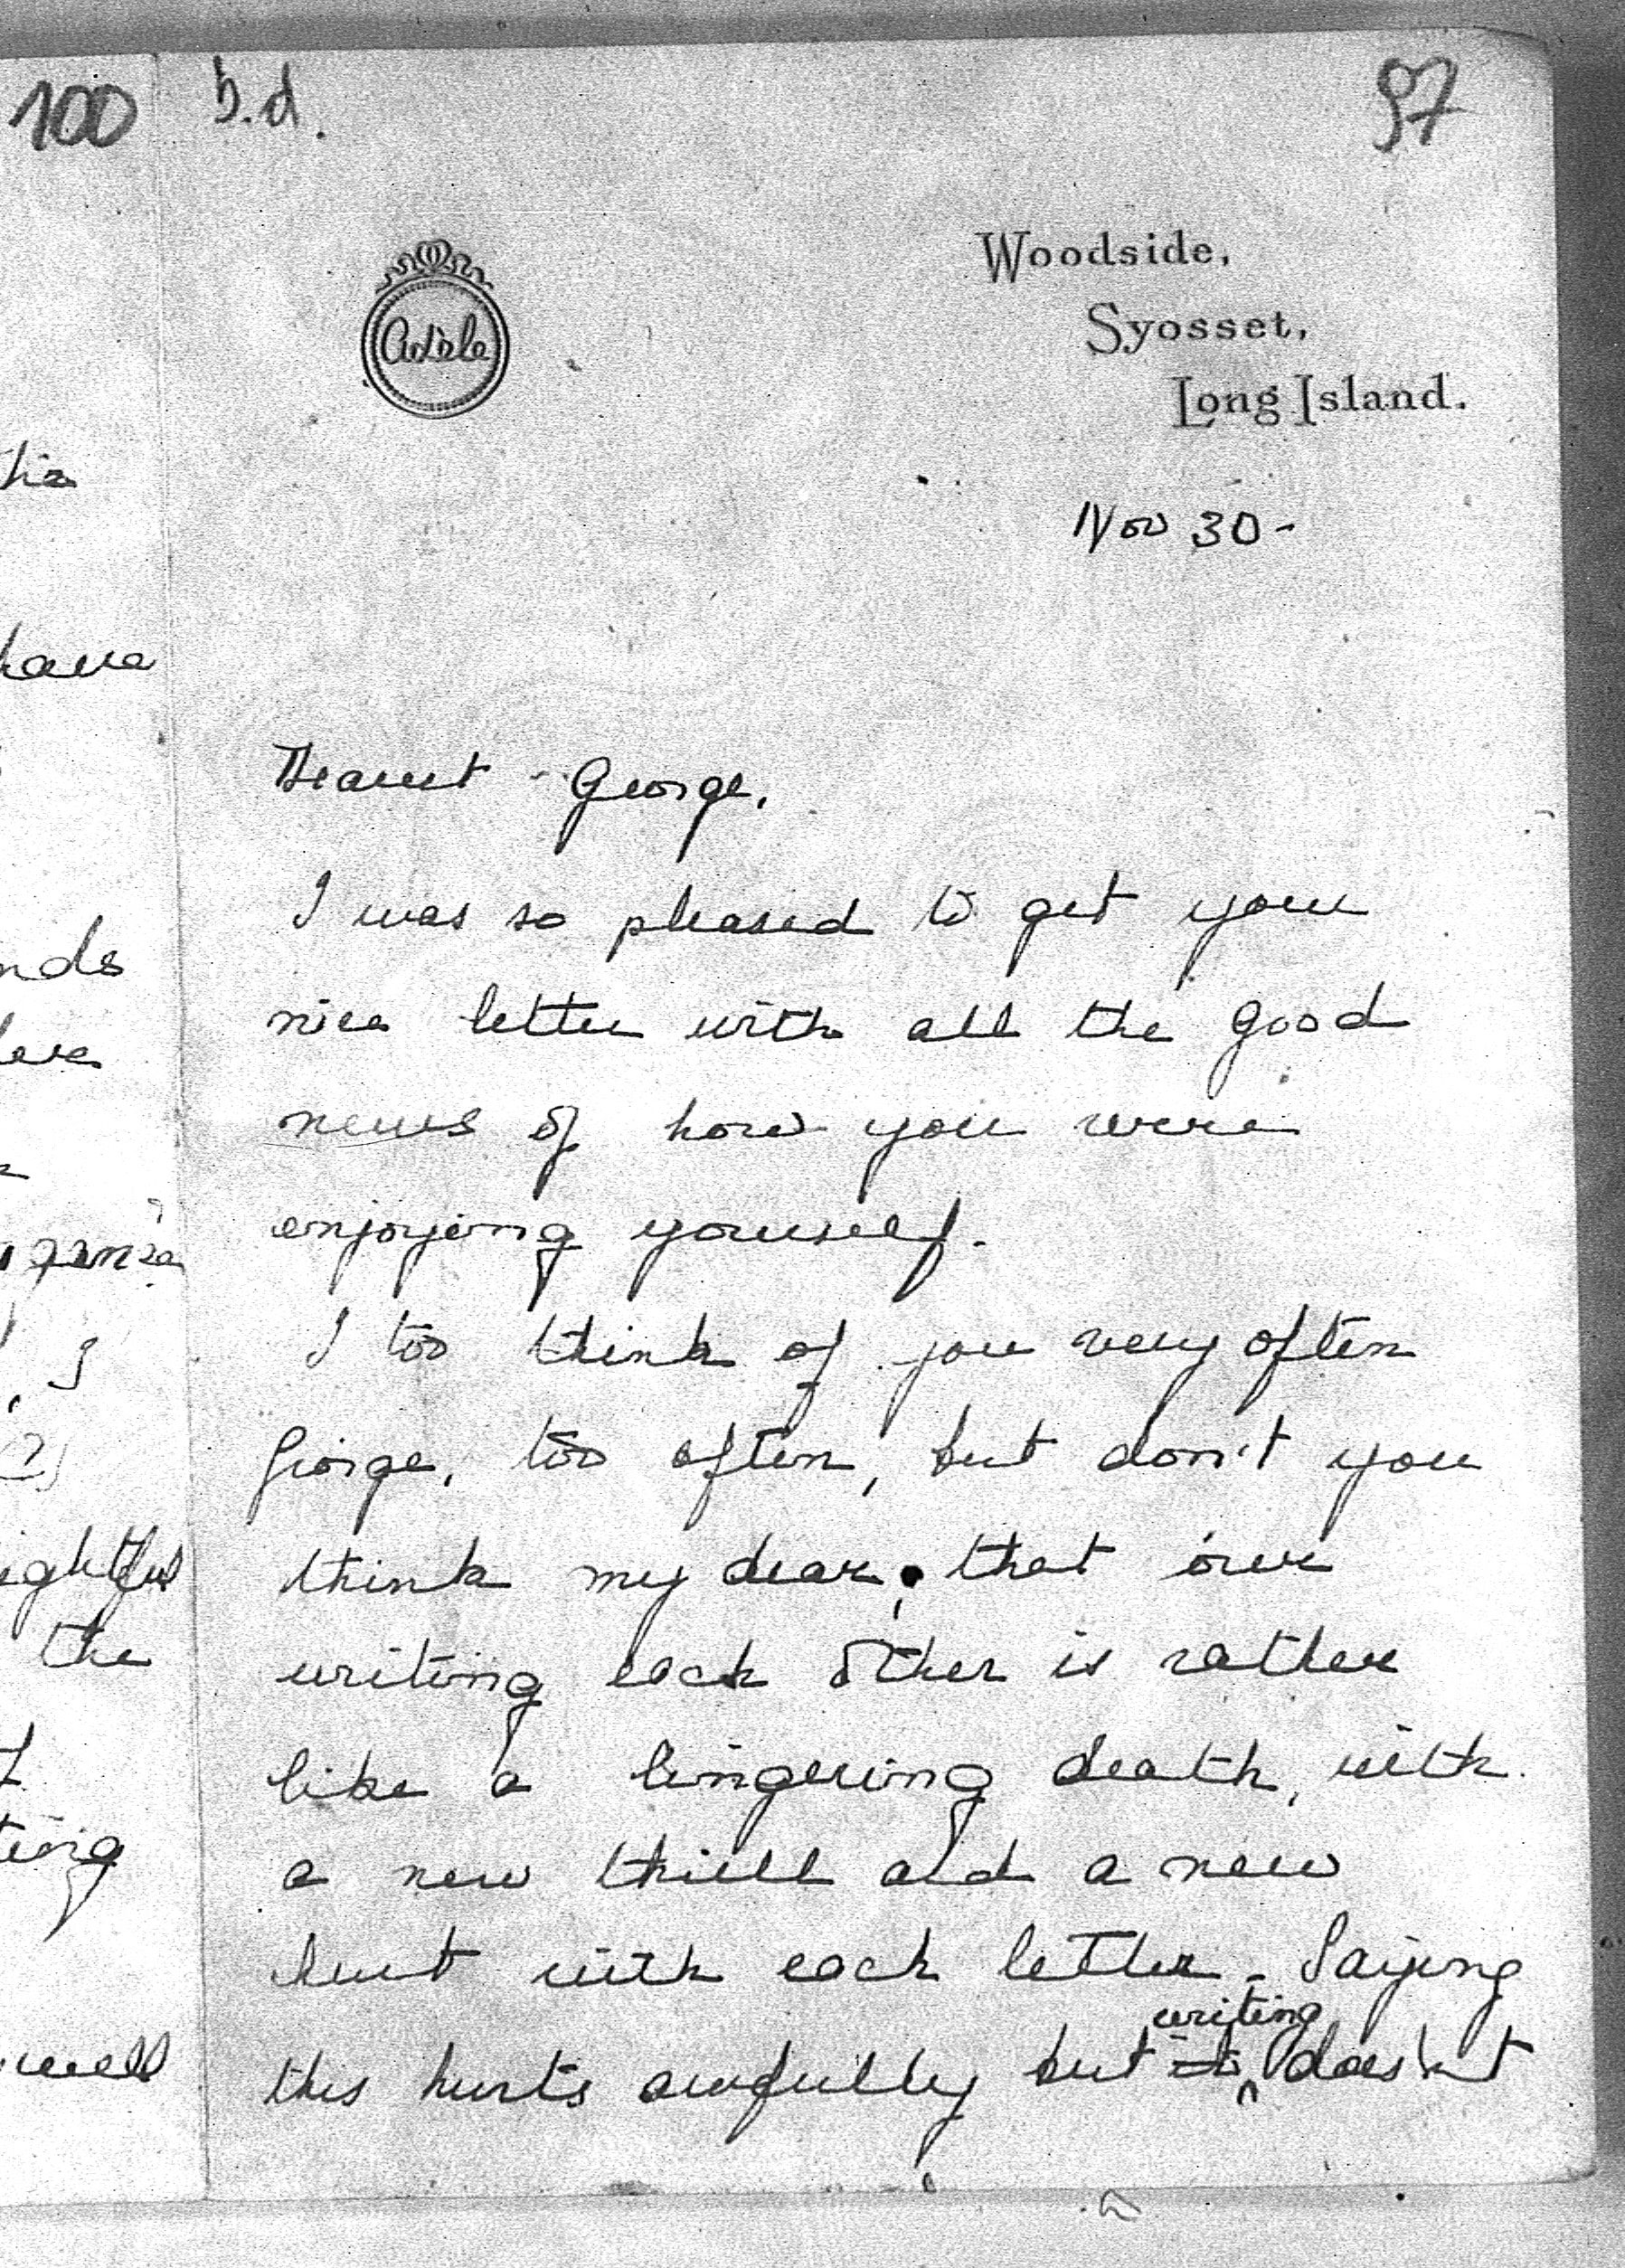 100 b.d. 97
Adèle
Woodside,
Syosset,
Long Island.
Nov 30-
Dearest George,
I was so pleased to get your
nice letter with all the good
news of how you were
enjoying yourself.
I too think of you very often
George, too often, but don't you
think my dear, that our
writing each other is rather
like a lingering death, with
a new thrill and a new
hurt with each letter - Saying
this hurts awfully but writing doesn't
have
nds
the
well